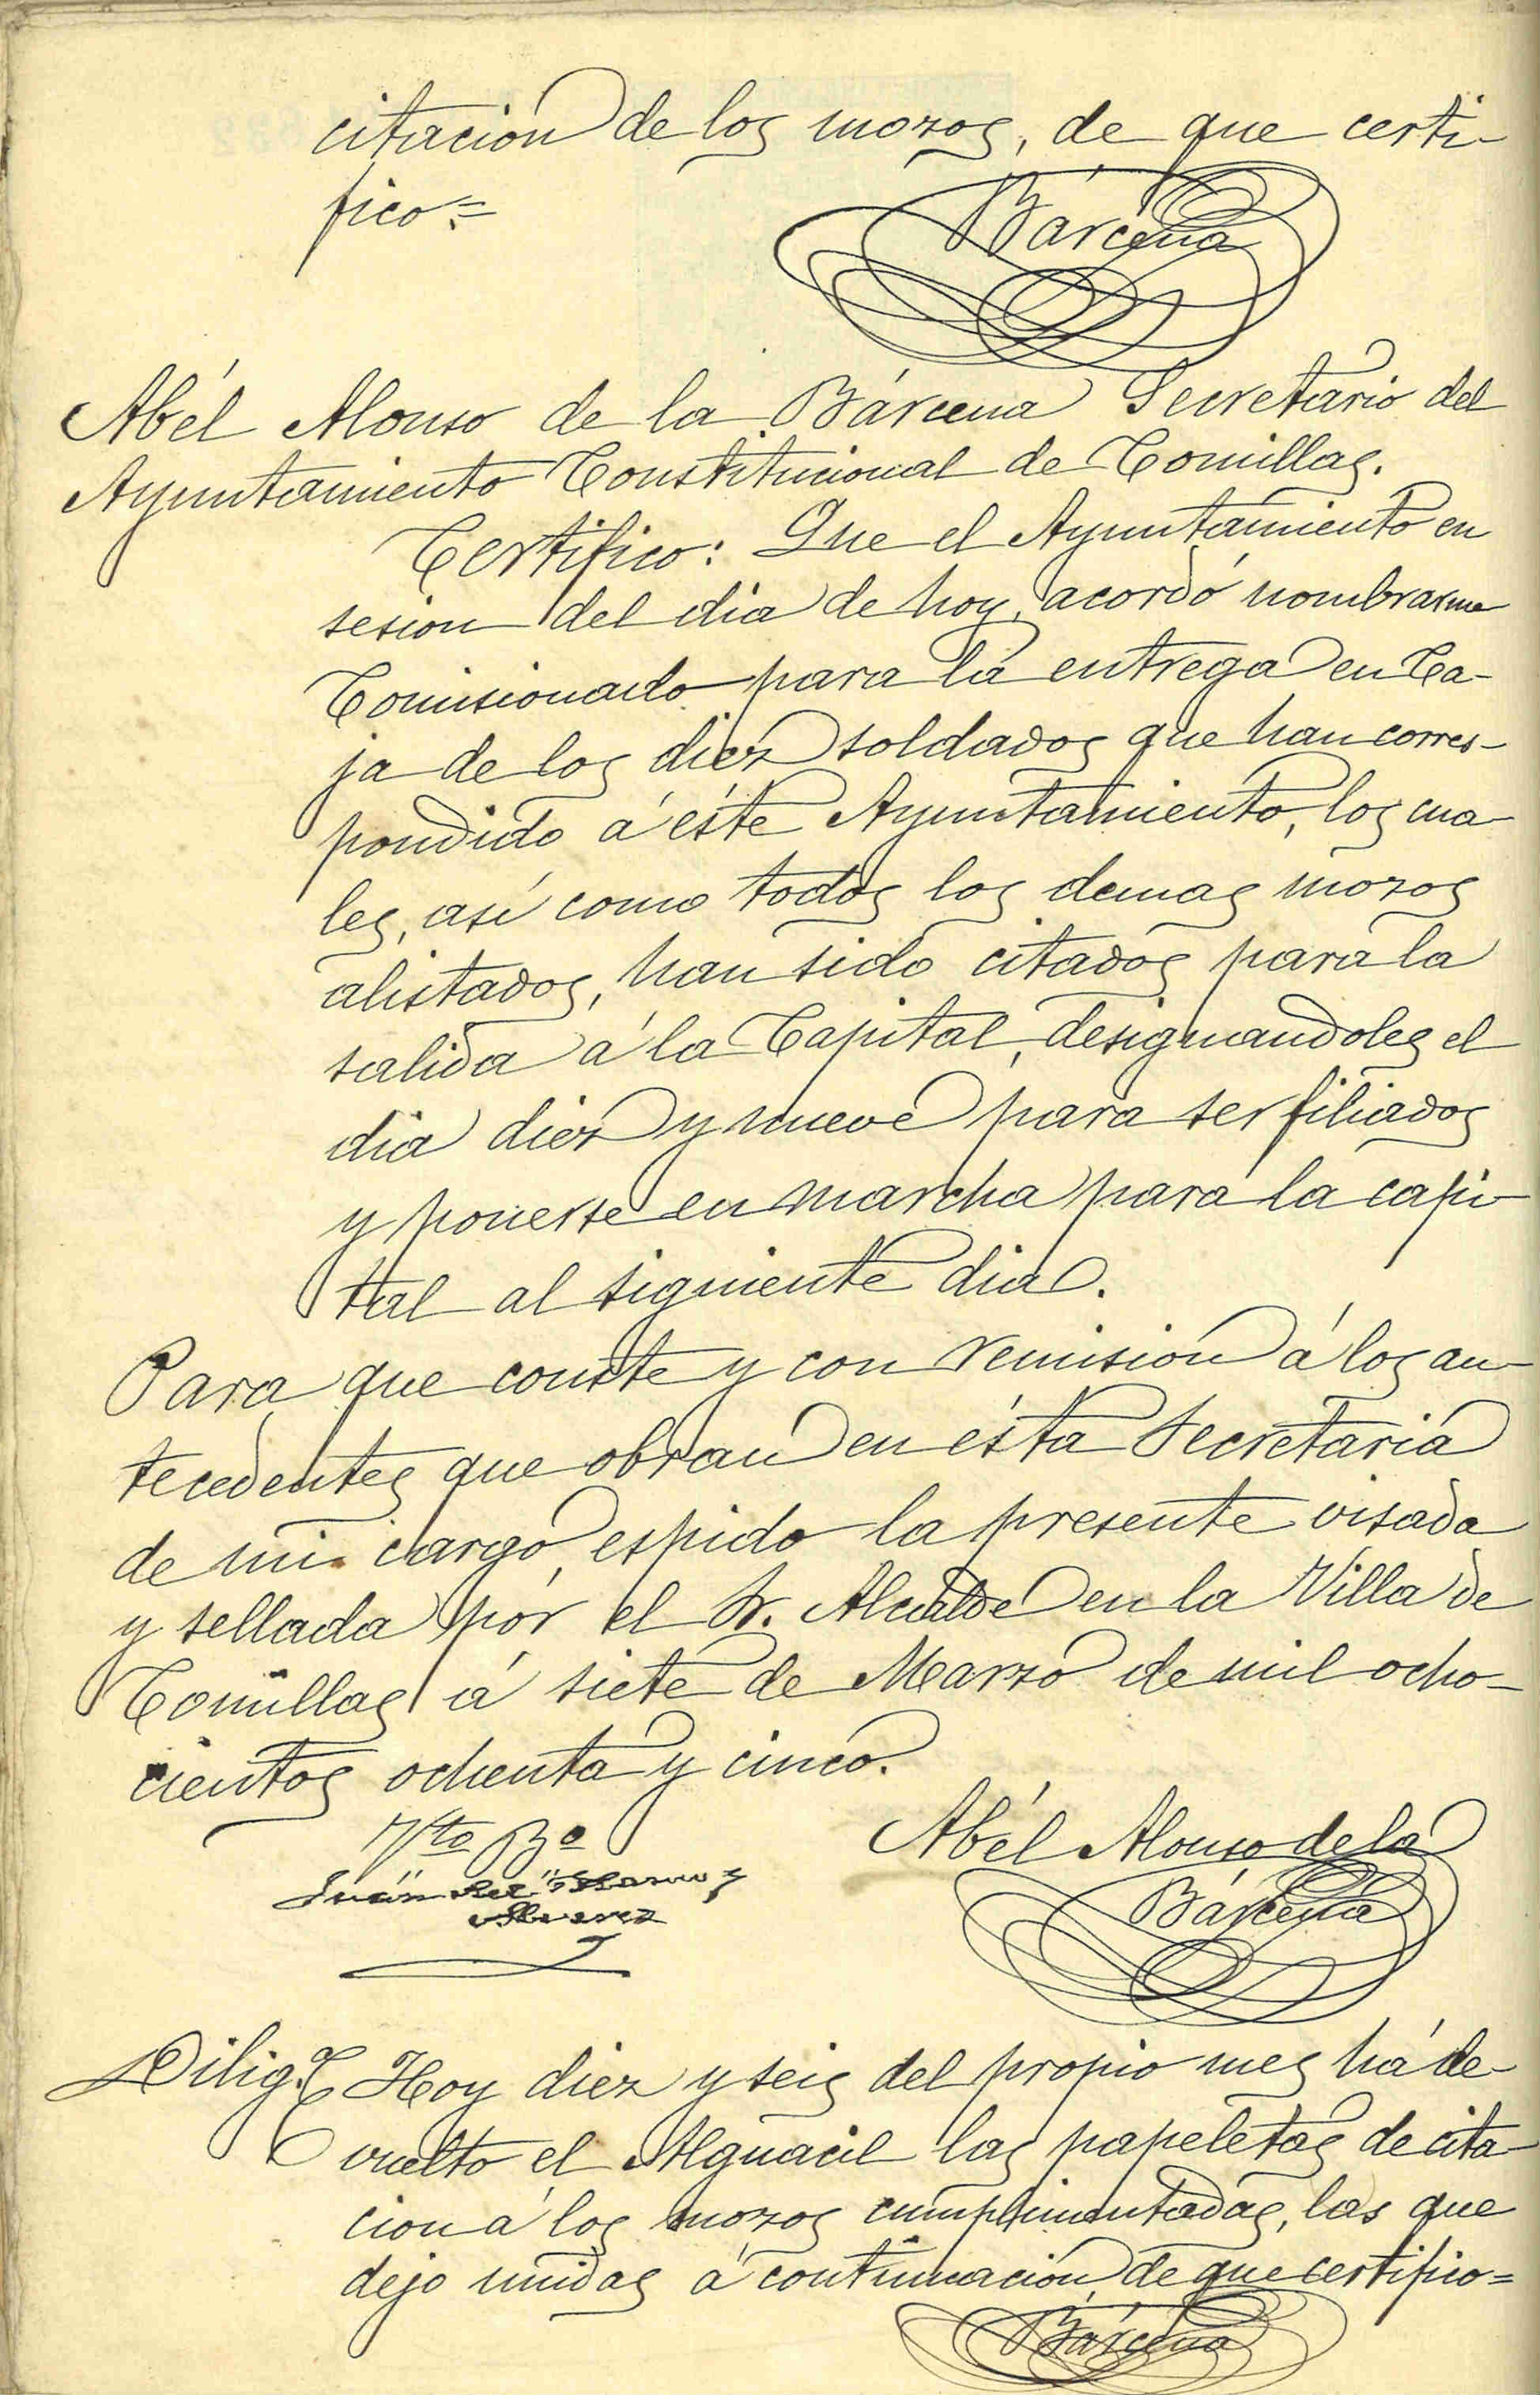 citación de los mozos, de que certi-
fico=
Bárcena
Abél Alonso de la Bárcena Secretario del
Ayuntamiento Constitucional de Comillas.
Certifico: Que el Ayuntamiento en
sesion del dia de hoy, acordó nombrarme
Comisionado para la entrega en Ca-
ja de los diez soldados que han corres-
pondido á éste Ayuntamiento, los cua-
les, asi como todos los demas mozos
alistados, han sido citados para la
salida á la Capital, designandoles el
dia diez y nueve para ser filiados
y ponerse en marcha para la capi-
tal al siguiente dia.
Para que conste y con remisión á los an-
tecedentes que obran en ésta Secretaria
de mi cargo, espido la presente visada
y sellada por el Sr. Alcalde en la Villa de
Comillas á siete de Marzo de mil ocho-
cientos ochenta y cinco.
Vto Bo
Abél Alonso de la
Juan
Bárcena
Dilig.ª Hoy diez y seis del propio mes há de-
vuelto el Alguacil las papeletas de cita-
cion á los mozos cumplimentadas, las que
dejo unidas á continuación, de que certifico=
Bárcena